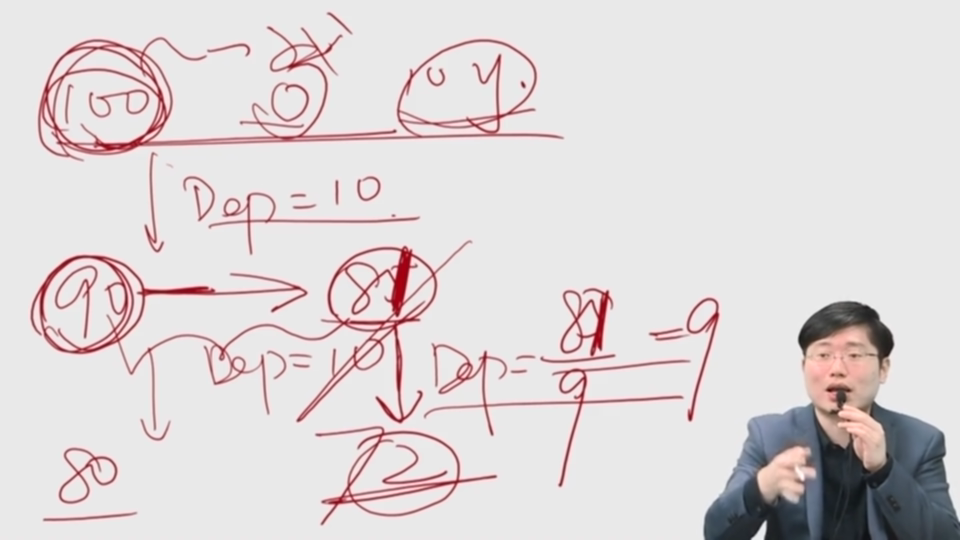 100 0 10 y.
Dep = 10
90 81
Dep = 10 Dep = 81/9 = 9
80 72